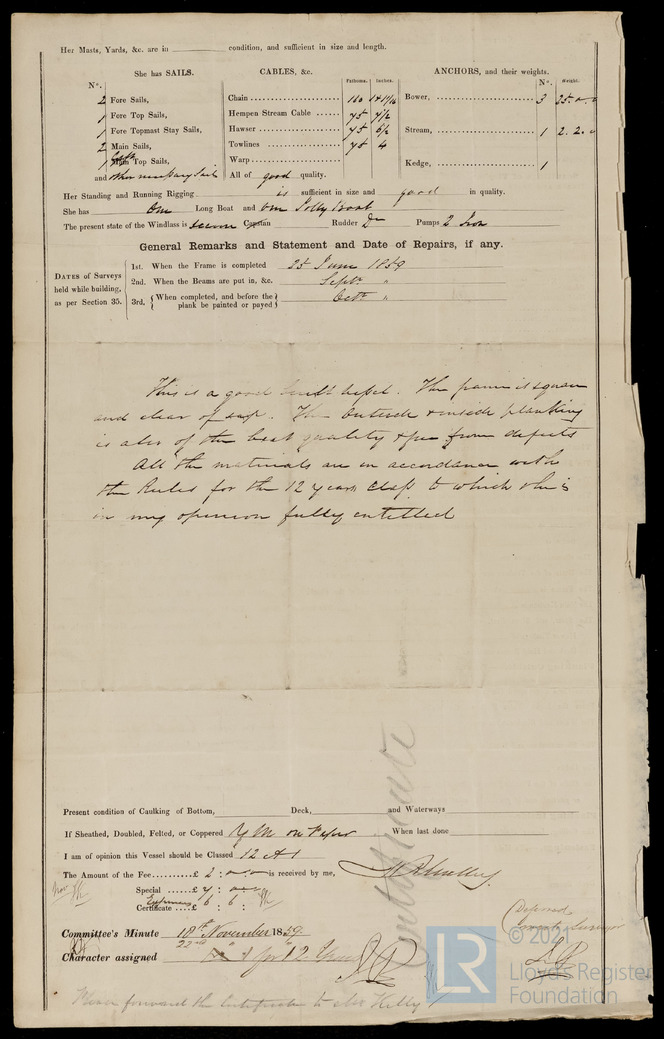 Her Masts, Yards, &c. are in condition, and sufficient in size and length.
She has SAILS. CABLES, &c. Fathoms. Inches. ANCHORS, and their weights. N°. Weight.
N°.
2 Fore Sails, Chain 160 1 4 11/16 Bower, 3 25
1 Fore Top Sails, Hempen Stream Cable 75 7½
1 Fore Topmast Stay Sails, Hawser 75 6½ Stream, 1 2. 2. 0
2 Main Sails, Towlines 75 4
1 Main Top Sails, Warp Kedge, 1
and other necessary Sails All of good quality.
Her Standing and Running Rigging is sufficient in size and good in quality.
She has One Long Boat and One Jolly Boat
The present state of the Windlass is secure Capstan Rudder Do Pumps 2 Iron
General Remarks and Statement and Date of Repairs, if any.
DATES of Surveys held while building, as per Section 35.
1st. When the Frame is completed 25 June 1859
2nd. When the Beams are put in, &c. Septr "
3rd, { When completed, and before the plank be painted or payed } Octr "
This is a good built vessel. The frame is square
and clear of sap. The outside & inside planking
is also of the best quality & free from defects
All the materials are in accordance with
the Rules for the 12 years Class to which she is
in my opinion fully entitled
Present condition of Caulking of Bottom, Deck, and Waterways
If Sheathed, Doubled, Felted, or Coppered Y M on Felt When last done
I am of opinion this Vessel should be Classed 12 A 1
The Amount of the Fee £ 2 : is received by me,
Special £ 7 :
Expenses
Certificate £ 6 : 6 :
Certificate
Committee's Minute 18th November 1859
22nd "
Character assigned A 1 for 12 Years
Deferred
© 2021
Lloyd's Register
Foundation
LR
Please forward the Certificate to Mr Kelly